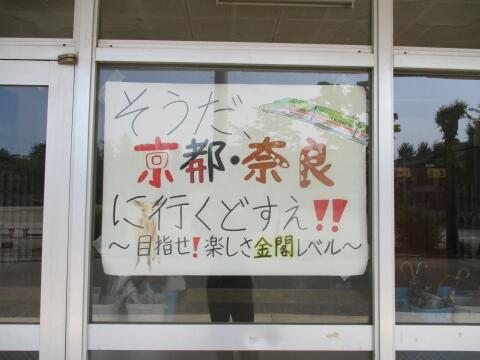 そうだ、
京都・奈良
に行くどすえ!!
～目指せ!楽しさ金閣レベル～